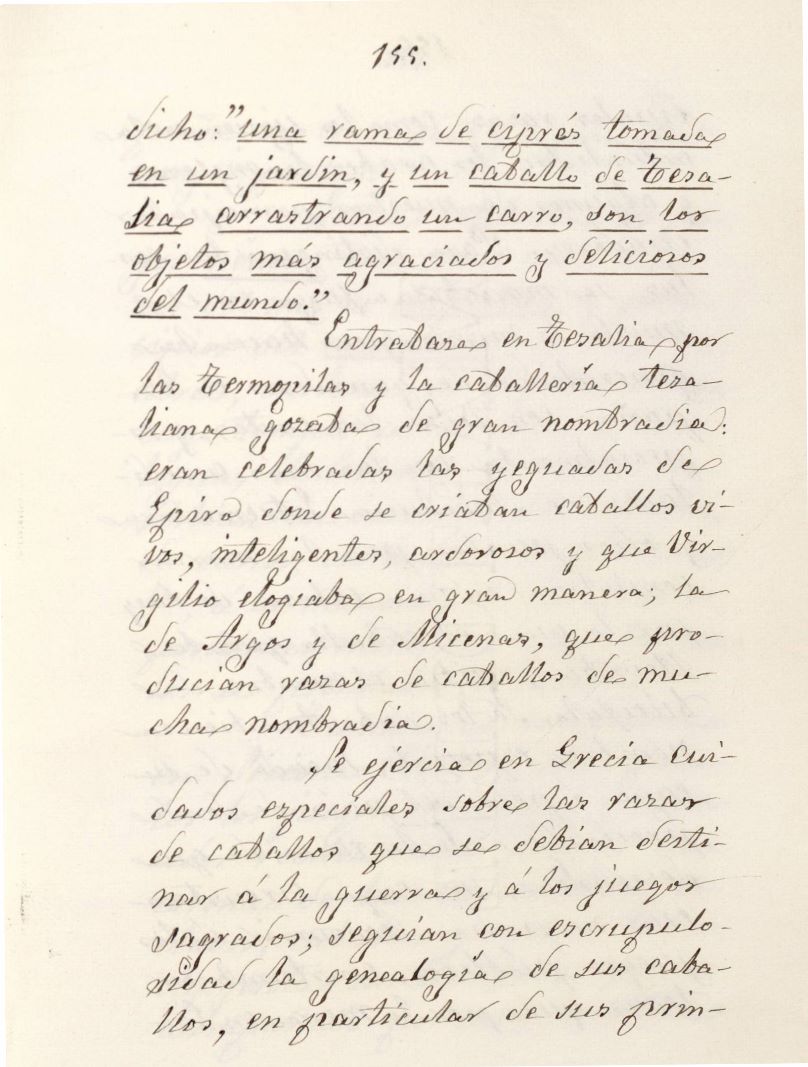 155.
dicho: "una rama de ciprés tomada
en un jardin, y un caballo de Tesa-
lia arrastrando un carro, son los
objetos más agraciados y deliciosos
del mundo."
Entrabase en Tesalia por
las Termopilas y la caballería tesa-
liana gozaba de gran nombradia:
eran celebradas las yeguadas de
Epiro donde se criaban caballos vi-
vos, inteligentes, ardorosos y que Vir-
gilio elogiaba en gran manera; la
de Argos y de Micenas, que pro-
ducian razas de caballos de mu-
cha nombradia.
Se ejércia en Grecia cui-
dados especiales sobre las razas
de caballos que se debían desti-
nar á la guerra y á los juegos
sagrados; seguían con escrupulo-
sidad la genealogía de sus caba-
llos, en particular de sus prin-